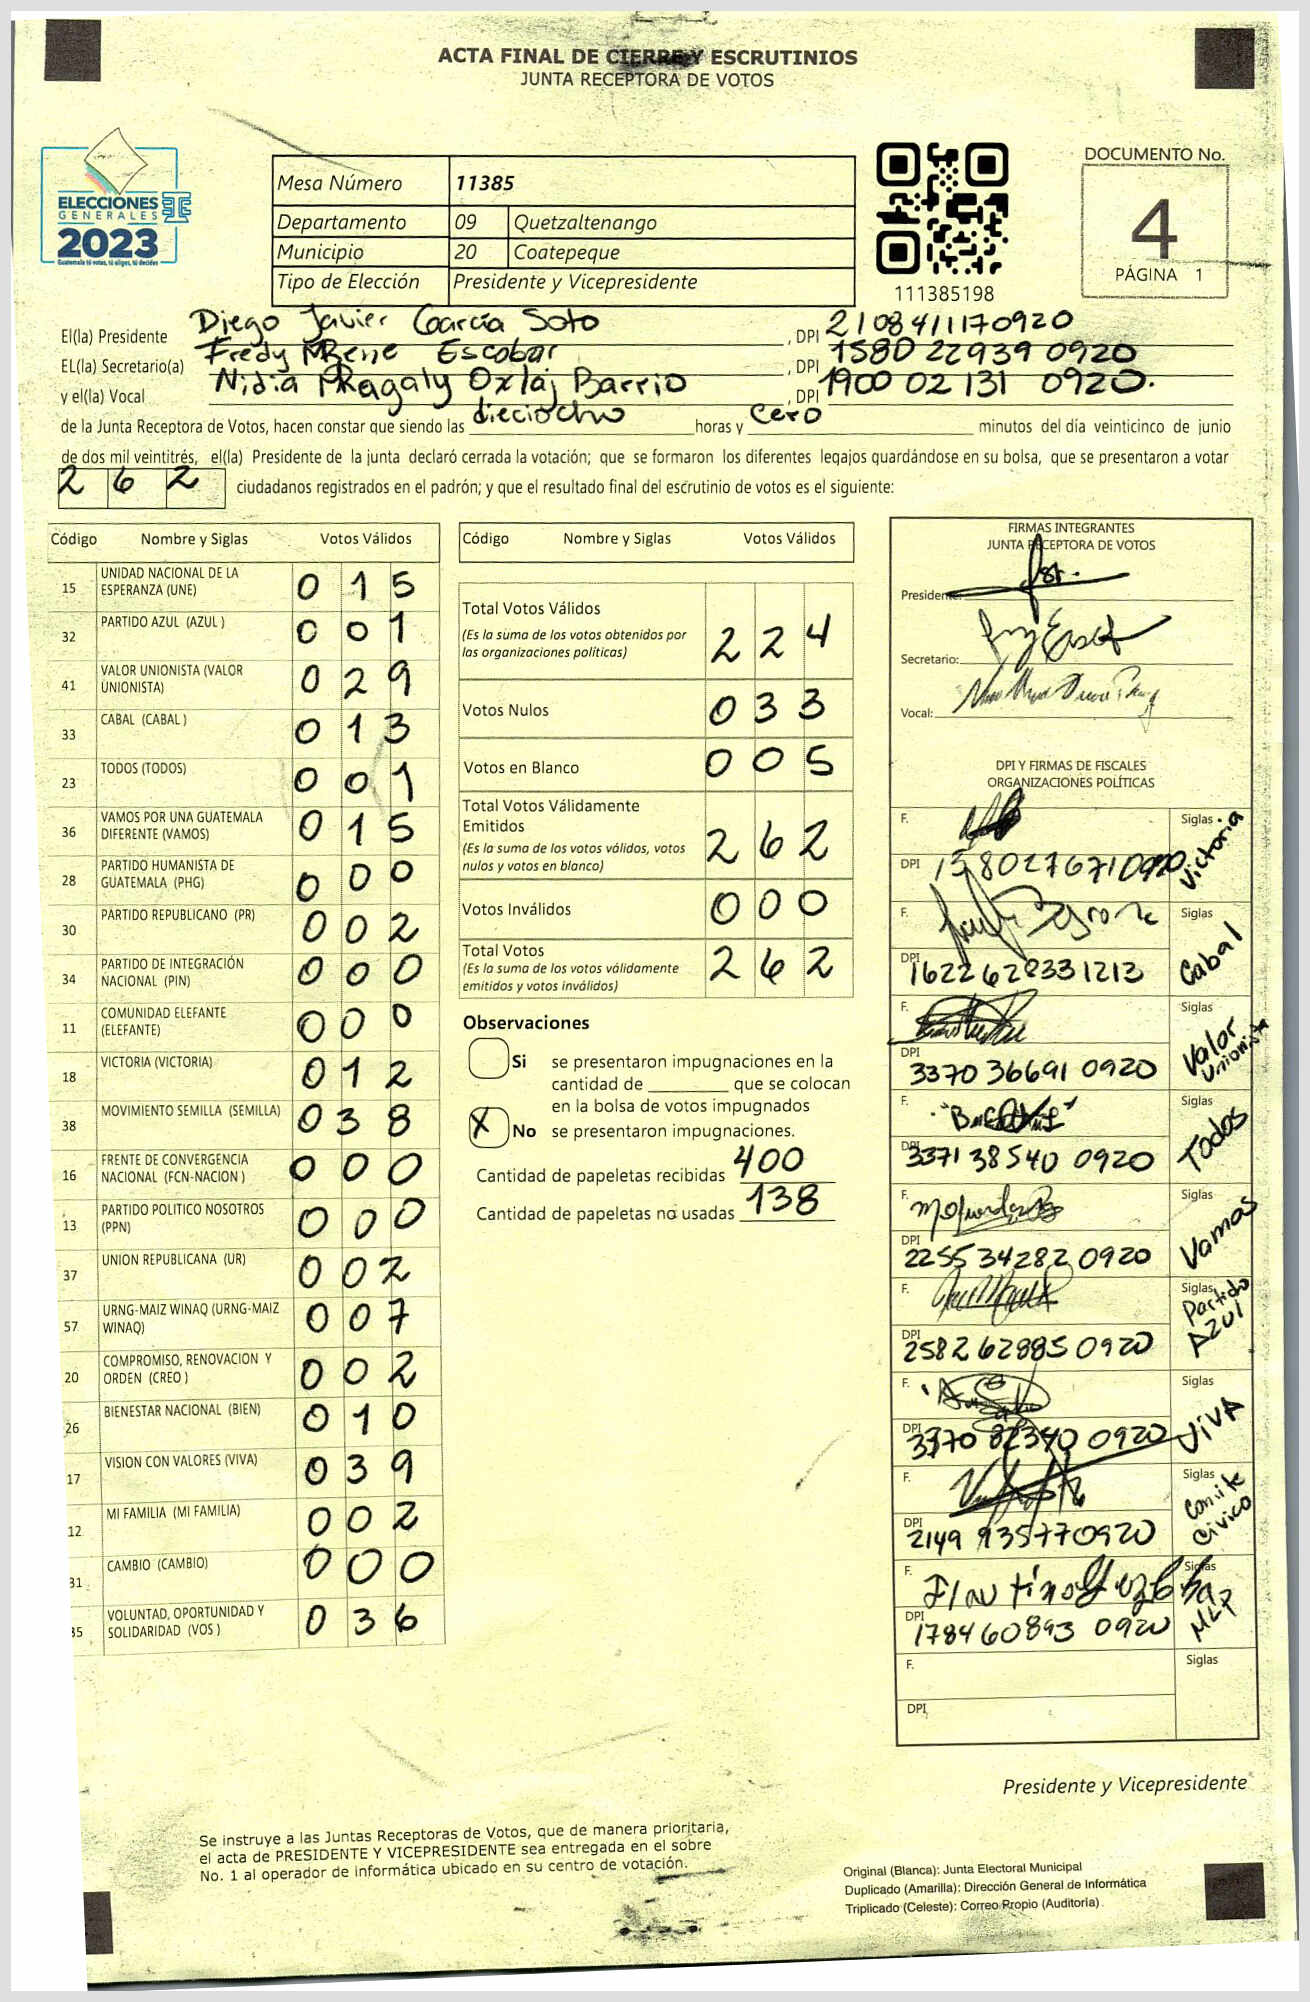 ACTA FINAL DE CIERRE Y ESCRUTINIOS
JUNTA RECEPTORA DE VOTOS
ELECCIONES
GENERALES
2023
Guatemala tú votas, tú eliges, tú decides
Mesa Número 11385
Departamento 09 Quetzaltenango
Municipio 20 Coatepeque
Tipo de Elección Presidente y Vicepresidente
111385198
DOCUMENTO No.
4
PÁGINA 1
El(la) Presidente Diego Javier García Soto, DPI 2108411170920
EL(la) Secretario(a) Fredy Rene Escobar, DPI 1580 22939 0920
y el(la) Vocal Nidia Magaly Oxlaj Barrio, DPI 1900 02 131 0920.
de la Junta Receptora de Votos, hacen constar que siendo las dieciocho horas y cero minutos del día veinticinco de junio
de dos mil veintitrés, el(la) Presidente de la junta declaró cerrada la votación; que se formaron los diferentes legajos guardándose en su bolsa, que se presentaron a votar
262 ciudadanos registrados en el padrón; y que el resultado final del escrutinio de votos es el siguiente:
Código Nombre y Siglas Votos Válidos
15 UNIDAD NACIONAL DE LA ESPERANZA (UNE) 015
32 PARTIDO AZUL (AZUL ) 001
41 VALOR UNIONISTA (VALOR UNIONISTA) 029
33 CABAL (CABAL ) 013
23 TODOS (TODOS) 001
36 VAMOS POR UNA GUATEMALA DIFERENTE (VAMOS) 015
28 PARTIDO HUMANISTA DE GUATEMALA (PHG) 000
30 PARTIDO REPUBLICANO (PR) 002
34 PARTIDO DE INTEGRACIÓN NACIONAL (PIN) 000
11 COMUNIDAD ELEFANTE (ELEFANTE) 000
18 VICTORIA (VICTORIA) 012
38 MOVIMIENTO SEMILLA (SEMILLA) 038
16 FRENTE DE CONVERGENCIA NACIONAL (FCN-NACION ) 000
13 PARTIDO POLITICO NOSOTROS (PPN) 000
37 UNION REPUBLICANA (UR) 002
57 URNG-MAIZ WINAQ (URNG-MAIZ WINAQ) 007
20 COMPROMISO, RENOVACION Y ORDEN (CREO ) 002
26 BIENESTAR NACIONAL (BIEN) 010
17 VISION CON VALORES (VIVA) 039
12 MI FAMILIA (MI FAMILIA) 002
31 CAMBIO (CAMBIO) 000
35 VOLUNTAD, OPORTUNIDAD Y SOLIDARIDAD (VOS ) 036
Código Nombre y Siglas Votos Válidos
Total Votos Válidos 224
(Es la suma de los votos obtenidos por
las organizaciones políticas)
Votos Nulos 033
Votos en Blanco 005
Total Votos Válidamente
Emitidos 262
(Es la suma de los votos válidos, votos
nulos y votos en blanco)
Votos Inválidos 000
Total Votos 262
(Es la suma de los votos válidamente
emitidos y votos inválidos)
Observaciones
Si se presentaron impugnaciones en la
cantidad de ________ que se colocan
en la bolsa de votos impugnados
X No se presentaron impugnaciones.
Cantidad de papeletas recibidas 400
Cantidad de papeletas no usadas 138
FIRMAS INTEGRANTES
JUNTA RECEPTORA DE VOTOS
Presidente:
Secretario:
Vocal:
DPI Y FIRMAS DE FISCALES
ORGANIZACIONES POLÍTICAS
F. Siglas Victoria
DPI 1580276710920
F. Siglas Cabal
DPI 1622628331213
F. Siglas Valor Unionista
DPI 3370 36691 0920
F. Siglas Todos
DPI 3371 38540 0920
F. Siglas Vamos
DPI 2255 34282 0920
F. Siglas Partido Azul
DPI 2582 62885 0920
F. Siglas VIVA
DPI 3370 82340 0920
F. Siglas Comite Civico
DPI 2149 935770920
F. Siglas MLP
DPI 1784 60893 0920
F. Siglas
DPI
Presidente y Vicepresidente
Se instruye a las Juntas Receptoras de Votos, que de manera prioritaria,
el acta de PRESIDENTE Y VICEPRESIDENTE sea entregada en el sobre
No. 1 al operador de informática ubicado en su centro de votación.
Original (Blanca): Junta Electoral Municipal
Duplicado (Amarilla): Dirección General de Informática
Triplicado (Celeste): Correo Propio (Auditoría)